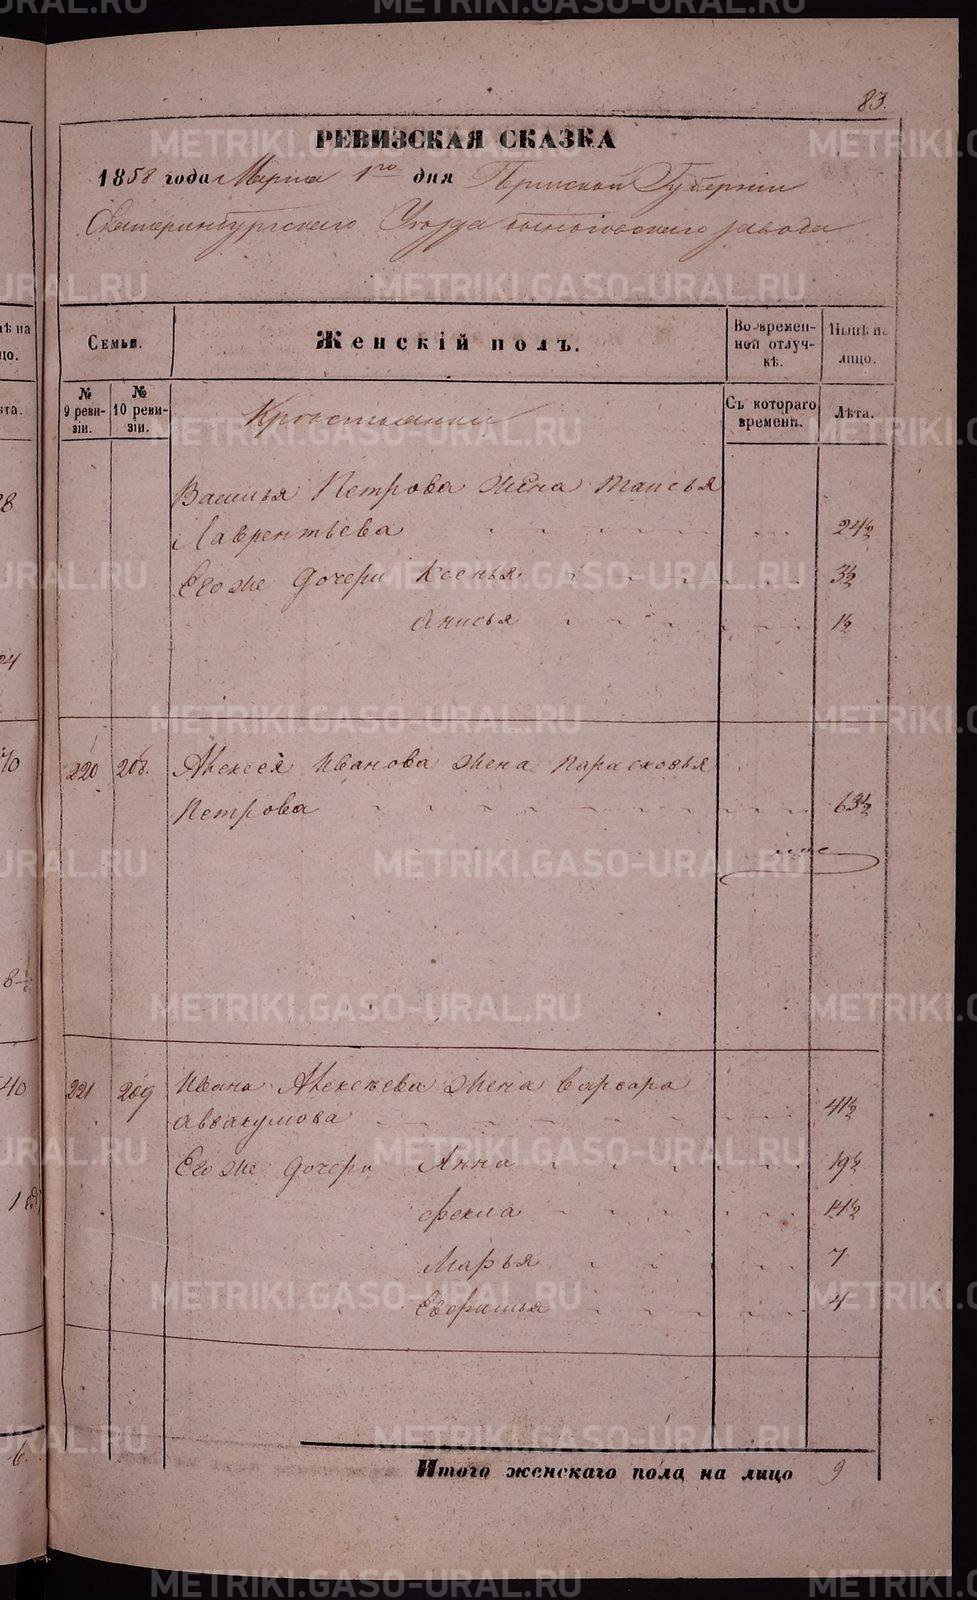 83.
РЕВИЗСКАЯ СКАЗКА
1858 года Марта 1го дня Пермской Губернии
Екатеринбургскаго Уезда завода
Семьи.
Женскій полъ.
Во времен-
ной отлуч-
кѣ.
Нынѣ на
лицо.
№
9 реви-
зіи.
№
10 реви-
зіи.
Съ котораго
времени.
Лѣта.
Василья Петрова жена Таисья
Лаврентьева 24½
Его же дочери Ксенья 3½
Анисья 1½
220 208. Алексея Иванова жена Парасковья
Петрова 63½
221 209 Ивана Алексѣева жена Варвара
Аввакумова 41½
Его же дочери Анна 19½
Фекла 14½
Марья 7
4
Итого женскаго пола на лицо 9
METRIKI.GASO-URAL.RU